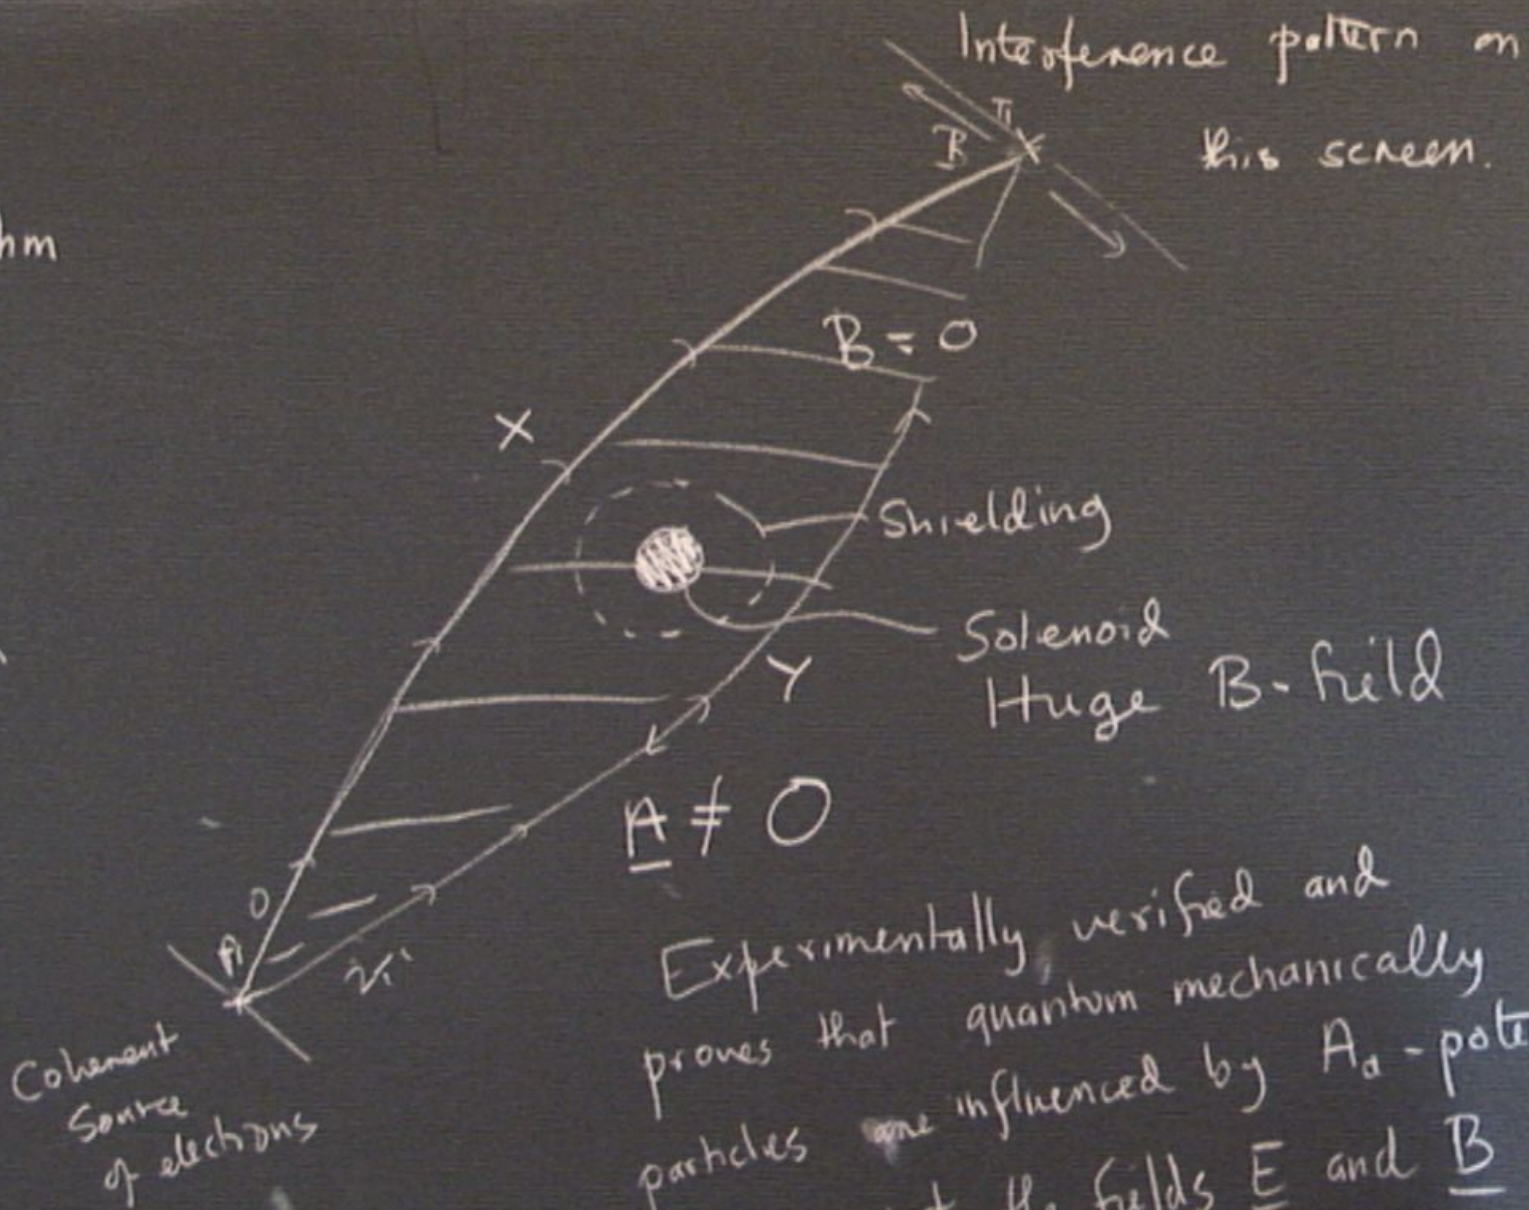 Interference pattern on
this screen.
hm
B = 0
X
Shielding
Solenoid
Huge B-field
Y
A ≠ 0
O
Coherent
Source
of electrons
Experimentally verified and
proves that quantum mechanically
particles are influenced by Aa - pote
the fields E and B